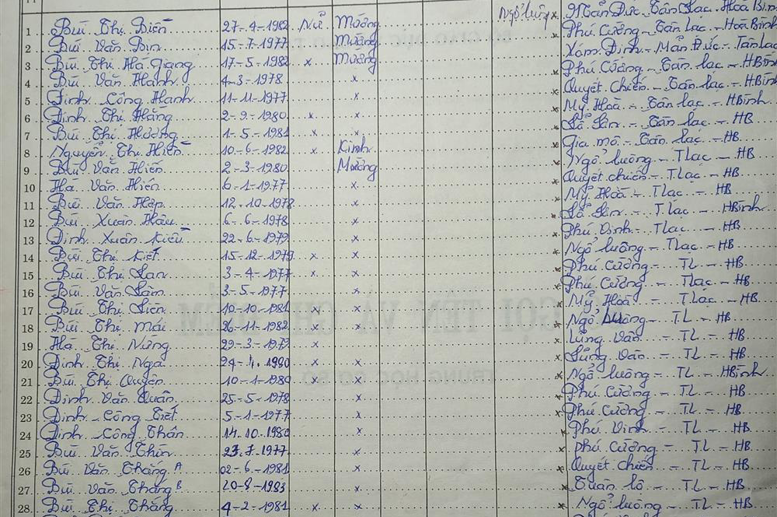 Ngổ luông x Mãn Đức - Tân Lạc - Hoà Bình
1 Bùi Thị Biển 27-4-1982 Nữ Mường Phú Cường - Tân Lạc - Hoà Bình
2 Bùi Văn Bịn 15-7-1977 Mường Xóm Định - Mãn Đức - Tân Lạc
3 Bùi Thị Hà Giang 17-5-1982 x Mường x Phú Cường - Tân Lạc - HBình
4 Bùi Văn Hành 4-3-1978 x x Quyết chiến - Tân lạc - HBình
5 Đinh Công Hạnh 11-11-1977 x x Mỹ Hoà - Tân lạc - HBình
6 Đinh Thị Hằng 2-9-1980 x x x Tân lạc - HB
7 Bùi Thị Hương 1-5-1981 x x x Gia mô - Tân lạc - HB
8 Nguyễn Thị Hiền 10-6-1982 x Kinh x Ngổ luông - TLạc - HB
9 Bùi Văn Hiến 2-3-1980 Mường x Quyết chiến - TLạc - HB
10 Hà Văn Hiến 6-1-1977 x x Mỹ Hoà - TLạc - HB
11 Bùi Văn Hiệp 12-10-1978 x x TLạc - HBình
12 Bùi Xuân Hậu 6-6-1978 x x Phú Vinh - TLạc - HB
13 Đinh Xuân Kiều 22-6-1979 x x Ngổ luông - TLạc - HB
14 Bùi Thị Kiết 15-12-1979 x x x Phú Cường - TL - HB
15 Bùi Thị Lan 3-4-1977 x x x Phú Cường - TLạc - HB
16 Bùi Văn Lâm 3-5-1977 x x Mỹ Hoà - TLạc - HB
17 Bùi Thị Liên 10-10-1981 x x x Ngổ luông - TL - HB
18 Bùi Thị Mái 26-11-1982 x x x Lũng Vân - TL - HB
19 Hà Thị Nừng 29-3-1977 x x Lũng Vân - TL - HB
20 Đinh Thị Nga 24-1-1980 x x x Ngổ luông - TL - HBình
21 Bùi Thị Quyên 10-1-1980 x x x Phú Cường - TL - HB
22 Đinh Văn Quân 25-5-1978 x x Phú Cường - TL - HB
23 Đinh Công Tiết 5-1-1977 x x Phú Vinh - TL - HB
24 Đinh Công Thân 14-10-1980 x x Phú Cường - TL - HB
25 Bùi Văn Thìn 27-7-1977 x x Quyết chiến - TL - HB
26 Bùi Văn Thăng A 02-6-1981 x x Tuân lộ - TL - HB
27 Bùi Văn Thăng B 20-8-1983 x x Ngổ luông - TL - HB
28 Bùi Thị Thăng 4-2-1981 x x